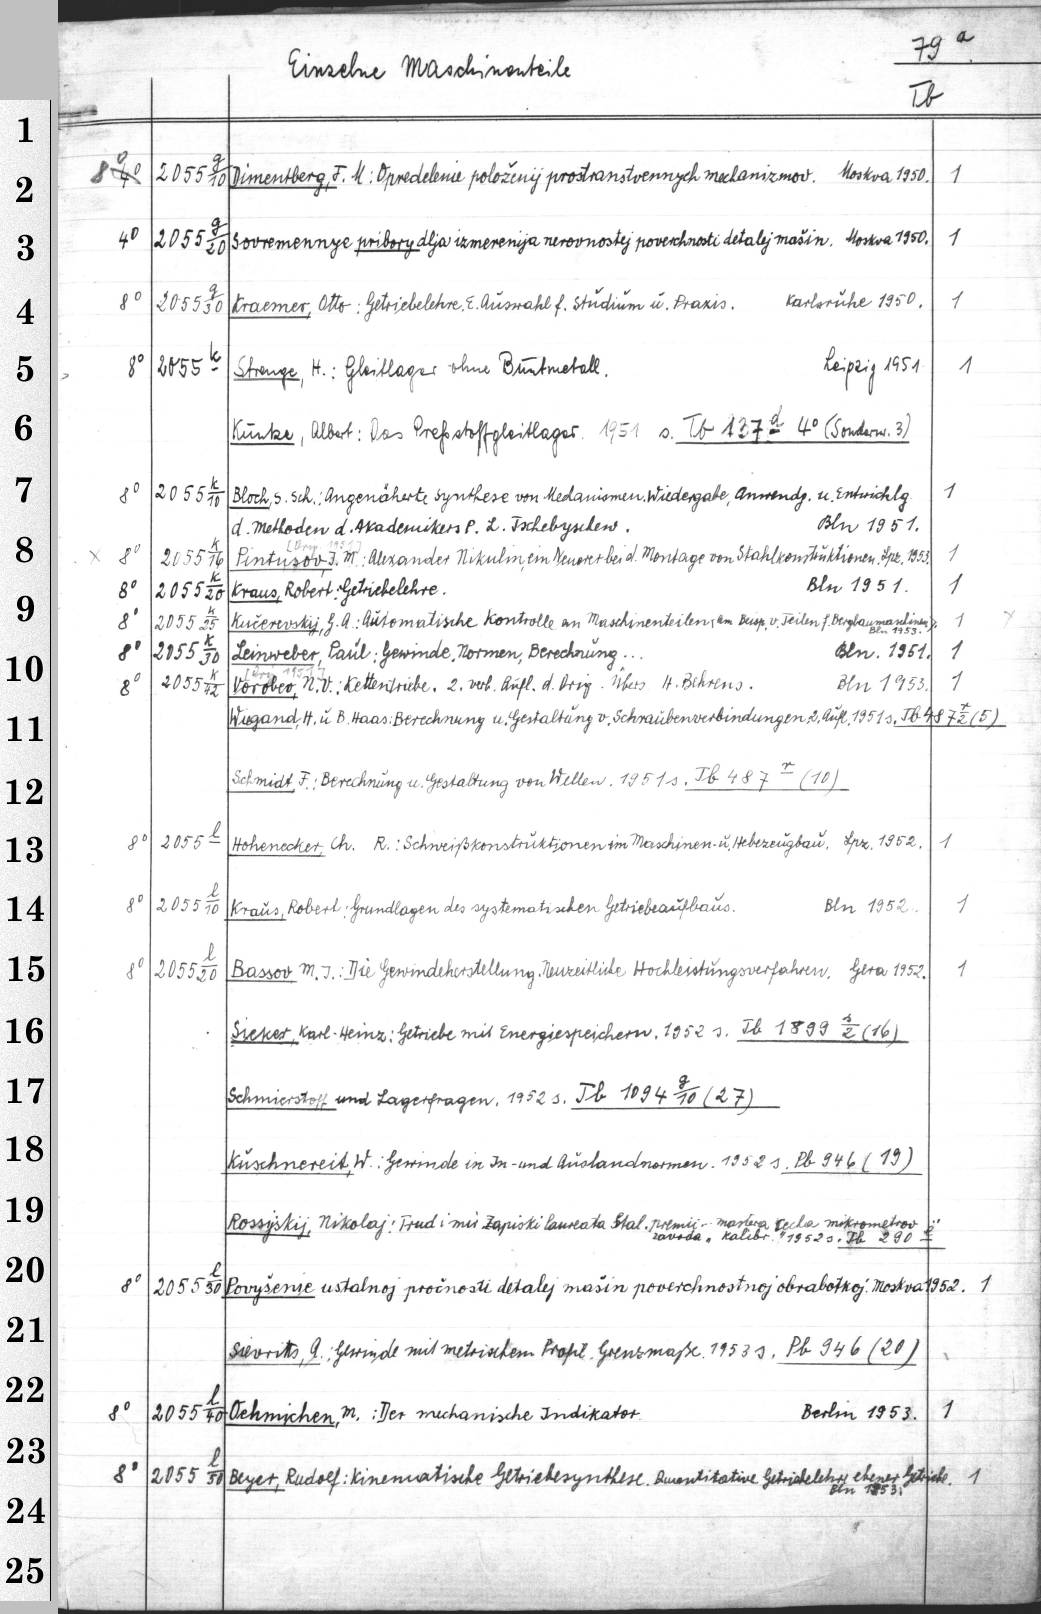 79 a
Einzelne Maschinenteile
Tb
1
2
3
4
5
6
7
8
9
10
11
12
13
14
15
16
17
18
19
20
21
22
23
24
25
8° 2055 g/10 Dimentberg, F. M: Opredelenie položenij prostranstvennych mechanizmov. Moskva 1950. 1
4° 2055 g/20 Sovremennye pribory dlja izmerenija nerovnostej poverchnosti detalej mašin. Moskva 1950. 1
8° 2055 g/30 Kraemer, Otto: Getriebelehre. E. Auswahl f. Studium u. Praxis. Karlsruhe 1950. 1
8° 2055 k Strenge, H.: Gleitlager ohne Buntmetall. Leipzig 1951 1
Kuntze, Albert: Das Preßstoffgleitlager. 1951 s. Tb 137 d 4° (Sonderw. 3)
8° 2055 k/10 Bloch, S. Sch.: Angenäherte Synthese von Mechanismen. Wiedergabe, Anwendg. u. Entwicklg 1
d. Methoden d. Akademikers P. L. Tschebyschew. Bln 1951.
[Orig. 1951]
x 8° 2055 k/16 Pintusov, I. M: Alexander Nikulin, ein Neuerer bei d. Montage von Stahlkonstruktionen. Lpz. 1953 1
8° 2055 k/20 Kraus, Robert: Getriebelehre. Bln 1951. 1
8° 2055 k/25 Kučerevskij, G. A.: Automatische Kontrolle an Maschinenteilen, am Beisp. v. Teilen f. Bergbaumaschinen. 1
Bln 1953.
8° 2055 k/30 Leinweber, Paul: Gewinde, Normen, Berechnung... Bln. 1951. 1
[Orig. 1951]
8° 2055 k/42 Vorob'ev, N. V.: Kettentriebe. 2. verb. Aufl. d. Orig. Übers H. Behrens. Bln 1953. 1
Wiegand, H. u B. Haas: Berechnung u. Gestaltung v. Schraubenverbindungen 2. Aufl. 1951 s. Tb 487 r/2 (5)
Schmidt, F.: Berechnung u. Gestaltung von Wellen. 1951 s. Tb 487 r (10)
8° 2055 l Hohenecker, Ch. R.: Schweißkonstruktionen im Maschinen- u. Hebezeugbau. Lpz. 1952. 1
8° 2055 l/10 Kraus, Robert: Grundlagen des systematischen Getriebeaufbaus. Bln 1952. 1
8° 2055 l/20 Bassov M. J.: Die Gewindeherstellung. Neuzeitliche Hochleistungsverfahren. Gera 1952. 1
Sieker, Karl-Heinz: Getriebe mit Energiespeichern. 1952 s. Tb 1899 s/2 (16)
Schmierstoff und Lagerfragen. 1952 s. Tb 1094 g/10 (27)
Kuschnereit, W.: Gewinde in In- und Auslandnormen. 1952 s. Pb 946 (19)
Rossijskij, Nikolaj: Trud i mir Zapiski laureata Stal. premij - mastera cecha mikrometrov
zavoda "Kalibr." 1952 s. Tb 290
8° 2055 l/30 Povyšenie ustalnoj pročnosti detalej mašin poverchnostnoj obrabotkoj. Moskva 1952. 1
Sievrits, A.: Gewinde mit metrischem Profil. Grenzmaße. 1953 s. Pb 946 (20)
8° 2055 l/40 Oehmichen, M.: Der mechanische Indikator Berlin 1953. 1
8° 2055 l/50 Beyer, Rudolf: Kinematische Getriebesynthese. Quantitative Getriebelehre ebener Getriebe. 1
Bln 1953.